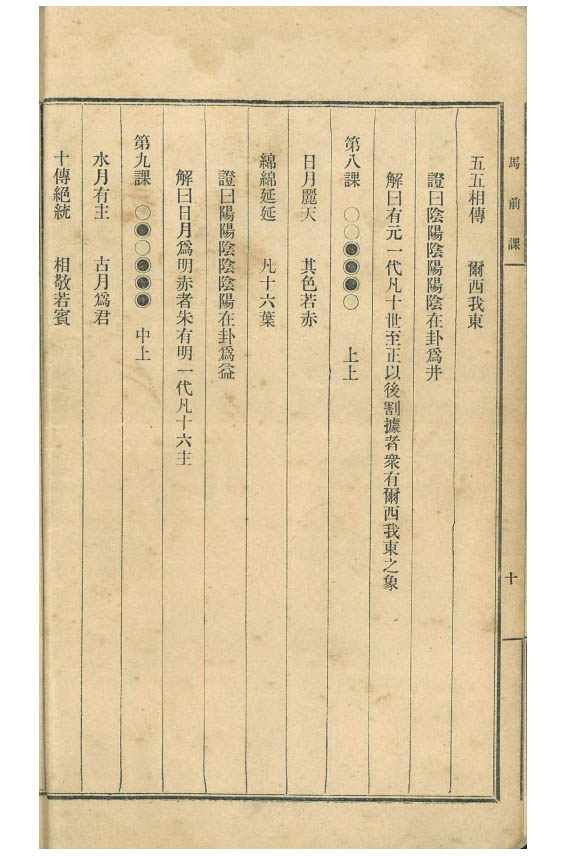 馬前課
十
五五相傳　爾西我東
證曰陰陽陰陽陽陰在卦爲井
解曰有元一代凡十世至正以後割據者衆有爾西我東之象
第八課　○○●●●○　上上
日月麗天　其色若赤
綿綿延延　凡十六葉
證曰陽陽陰陰陰陽在卦爲益
解曰日月爲明赤者朱有明一代凡十六主
第九課　○●○●●●　中上
水月有主　古月爲君
十傳絕統　相敬若賓